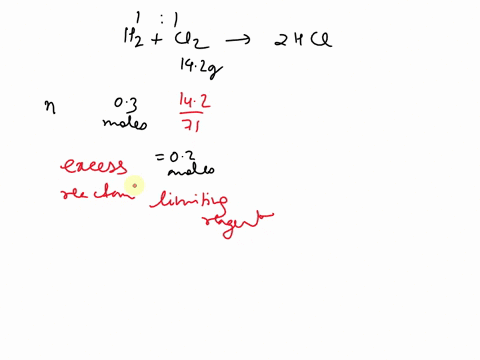 1 : 1
H2 + Cl2 → 2HCl
14.2g
n 0.3 moles 14.2/71
= 0.2 moles
excess
limiting
reagent